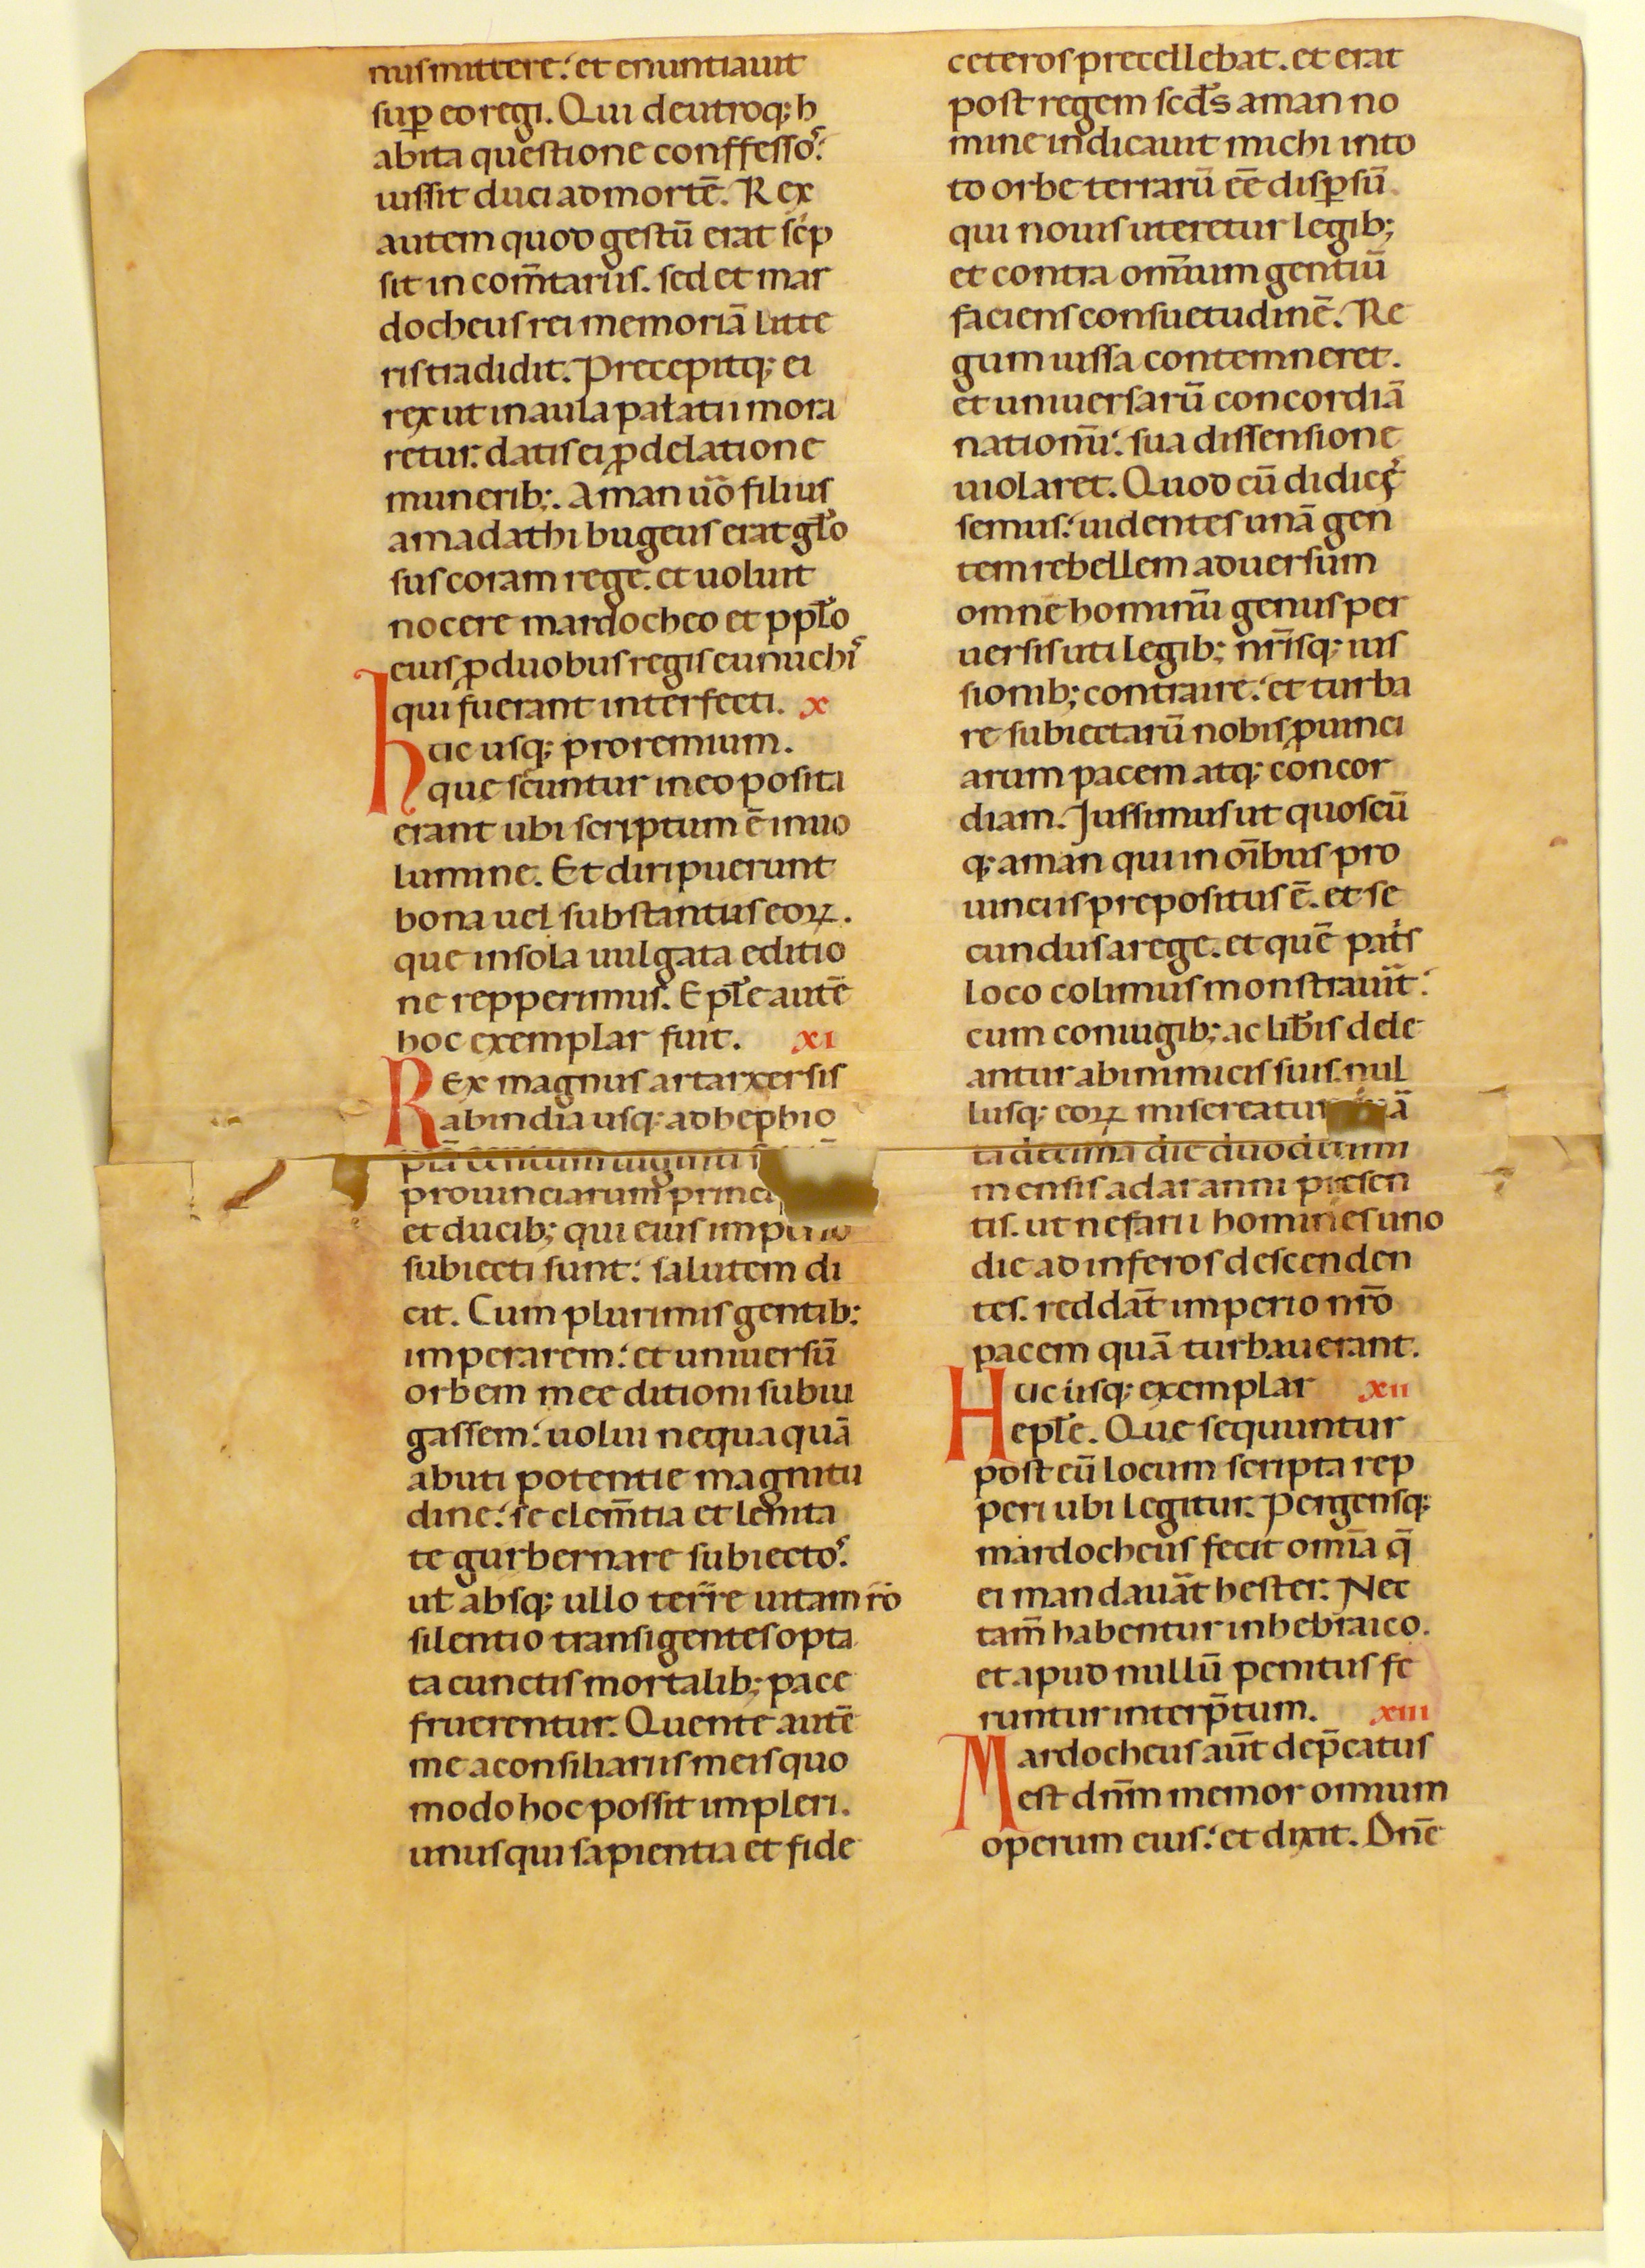 nus mittere. et enuntiauit
suꝑ eo regi. Qui de utroq; h
abita questione conffesso.
iussit duci ad mortē. Rex
autem quod gestū erat sc̄p
sit in com̄tariis. sed et mar
docheus rei memoriā litte
ris tradidit. Precepitq; ei
rex ut in aula palatii mora
retur. datis ei ꝓ delatione
munerib;. Aman ūo filius
amadathi bugeus erat gl̄o
sus coram rege. et uoluit
nocere mardocheo et ppl̄o
eius ꝓ duobus regis eunuchis
qui fuerant interfecti. x
huc usq; proremium.
que sc̄untur in eo posita
erant ubi scriptum ē in uo
lumine. Et diripuerunt
bona uel substantias eoꝝ.
que in sola uulgata editio
ne repperimus. Epl̄e autē
hoc exemplar fuit. xi
REx magnus artarxersis
ab india usq; ad hethio
piā centum uiginti
prouinciarum princi
et ducib; qui eius imperio
subiecti sunt. salutem di
cit. Cum plurimis gentib;
imperarem. et uniuersū
orbem mee ditioni subiu
gassem. uolui nequaquā
abuti potentie magnitu
dine. se clem̄tia et lenita
te gurbernare subiectos.
ut absq; ullo terr̄re uitam r̄o
silentio transigentes opta
ta cunctis mortalib; pace
fruerentur. Quente autē
me a consiliariis meis quo
modo hoc possit impleri.
unus qui sapientia et fide
ceteros precellebat. et erat
post regem scd̄s aman no
mine indicauit michi in to
to orbe terrarū eē disꝑsū
qui nouis uteretur legib;
et contra om̄ium gentiū
faciens consuetudinē. Re
gum iussa contemneret.
et uniuersarū concordiā
nationū. sua dissensione
uiolaret. Quod cū didics̄
semus. uidentes unā gen
tem rebellem aduersum
omne hominū genus per
uersis uti legib; nr̄isq; ius
sionib; contraire. et turba
re subiectarū nobis ꝓuinci
arum pacem atq; concor
diam. Jussimus ut quoscū
q; aman qui in oībus pro
uinciis prepositus ē. et se
cundus a rege. et quē pat̄s
loco colimus monstrauīt.
cum coniugib; ac lib̄is dele
antur ab inimicis suis. nul
lusq; eoꝝ misereatur ā
ta decima die duodecimi
mensis adar anni presen
tis. ut nefarii homines uno
die ad inferos descenden
tes. reddāt imperio nr̄o
pacem quā turbauerant.
Huc usq; exemplar xii
epl̄e. Que sequuntur
post eū locum scripta rep
peri ubi legitur. Pergensq;
mardocheus fecit omīa q̄
ei mandauāt hester. Nec
tam̄ habentur in hebraico.
et apud nullū penitus fe
runtur interp̄tum. xiii
Mardocheus aūt dep̄catus
est dn̄m memor omnium
operum eius. et dixit. Dn̄e